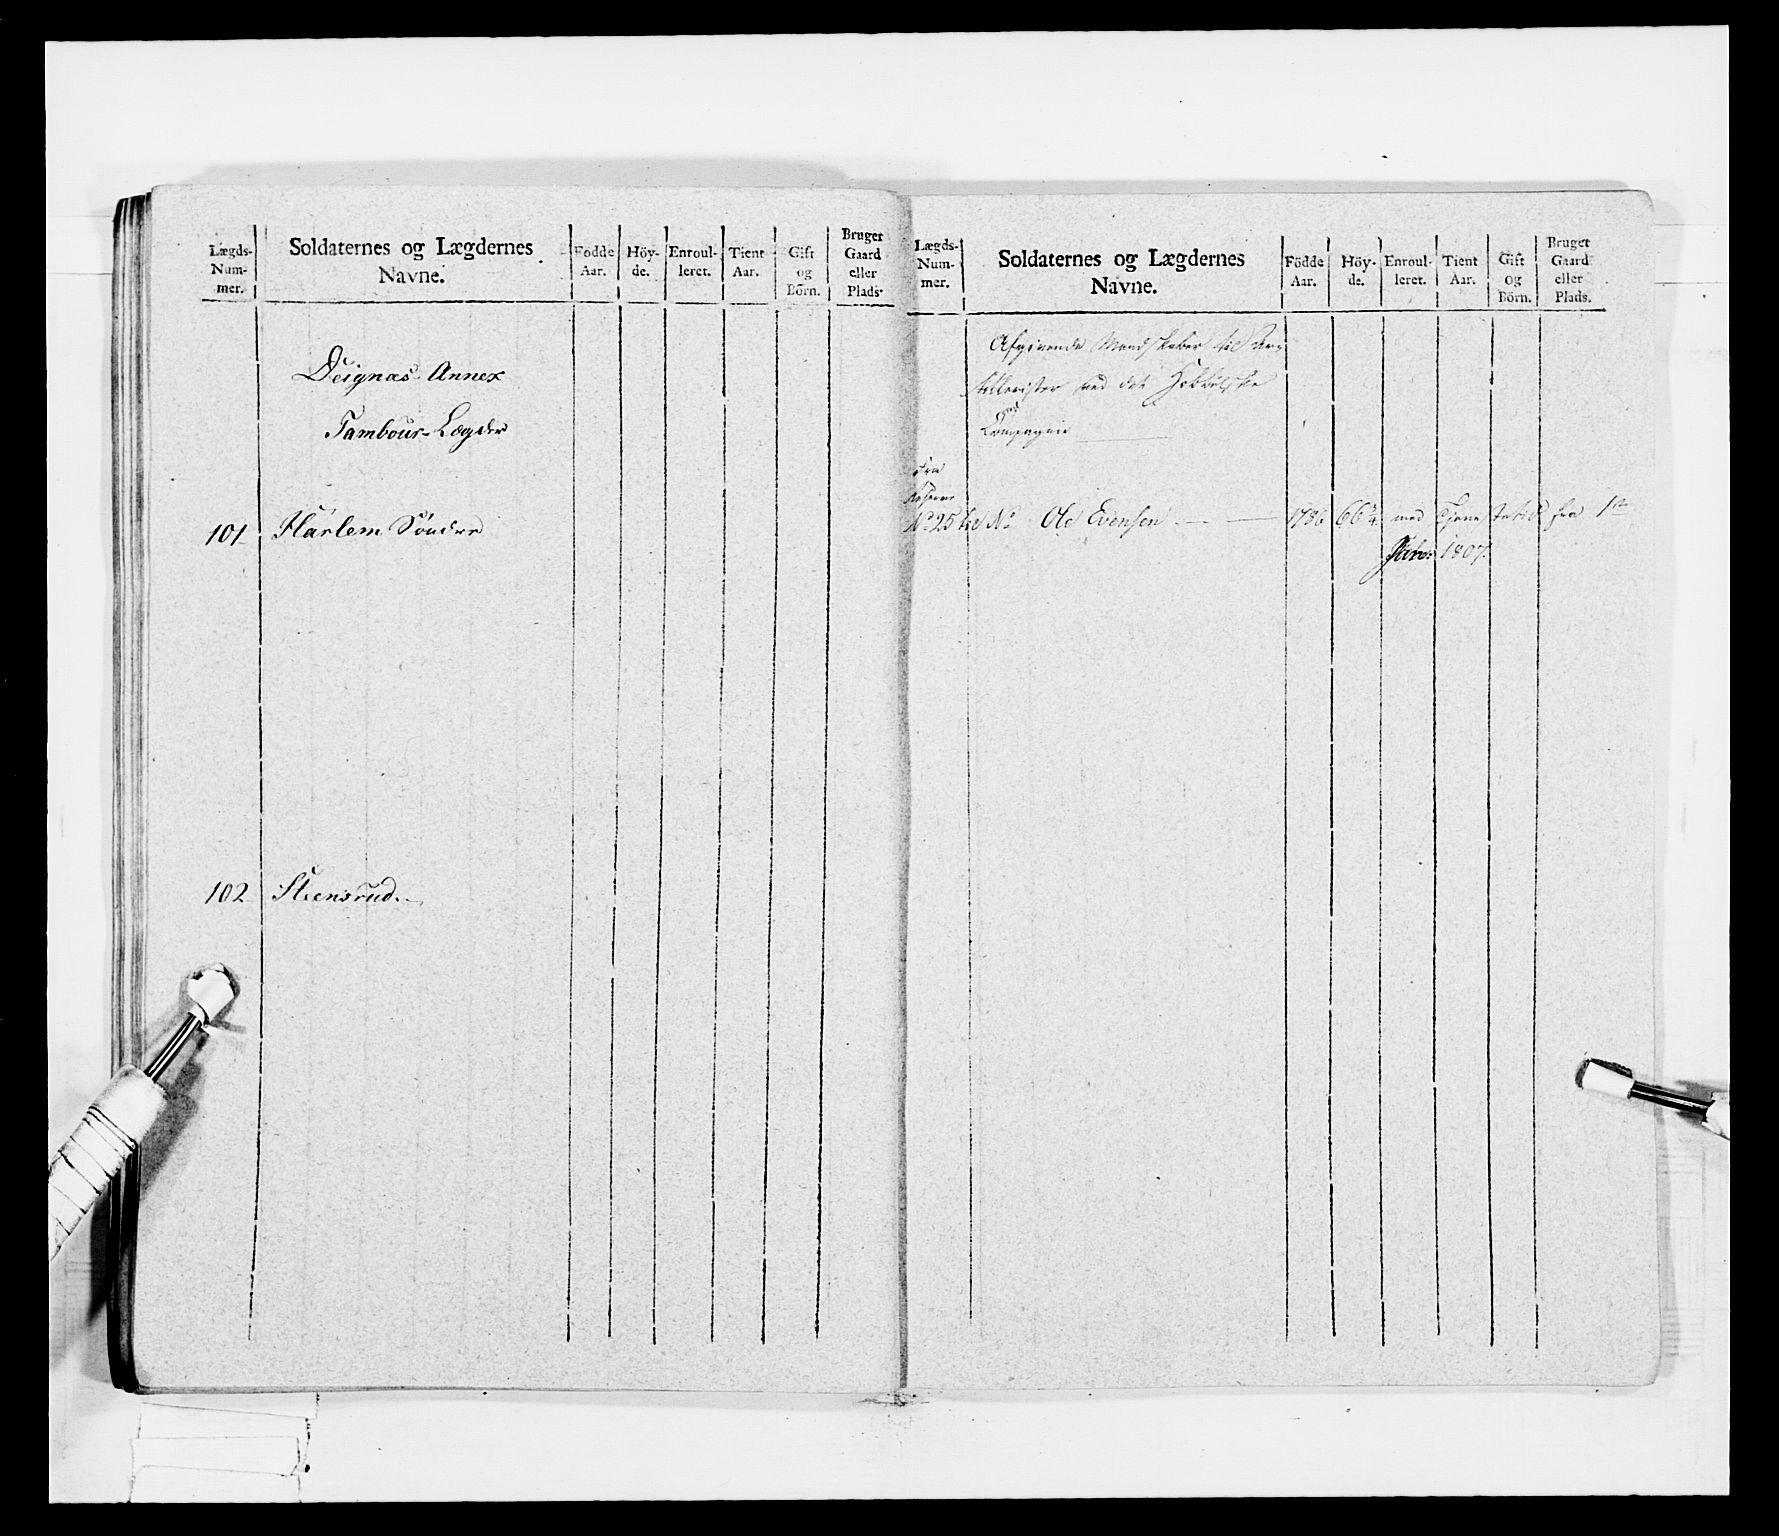 Lægds-
Num-
mer.
Soldaternes og Lægdernes
Navne.
Fødde
Aar.
Höy-
de.
Enroul-
leret.
Tient
Aar.
Gift
og
Börn.
Bruger
Gaard
eller
Plads.
Deignæs Annex
Tambour-Lægder
101 Harlem Söndre
102 Steensrud.
Lægds-
Num-
mer.
Soldaternes og Lægdernes
Navne.
Födde
Aar.
Höy-
de.
Enroul-
leret.
Tient
Aar.
Gift
og
Börn.
Bruger
Gaard
eller
Plads.
Afgivende Mandskaber til Ar-
tillerister ved det
Compagnie
fra
Reserve
No 25 No Ole Evensen 1786 66 med Tjenestetid fra 1te
1807.